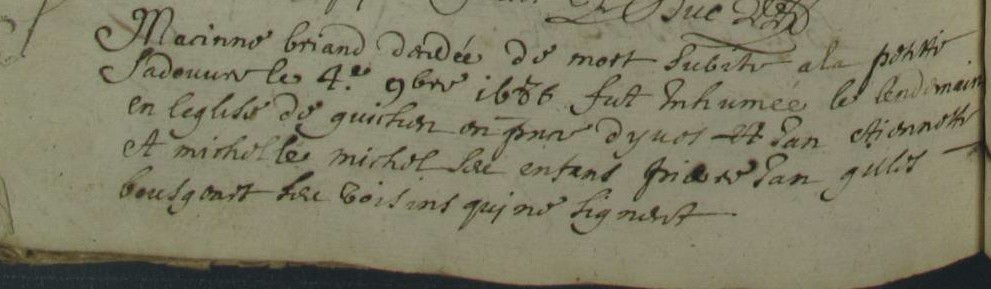 Duc
Macinne briand décédée de mort subite a la petitte
Sadouvre le 4.e 9bre 1686 fut Inhumée le lendemain
en leglise de guichen en pnce dyves et Jan etiennette
et michelle michel ses enfans pierre Jan gilles
bougeart ses voisins qui ne signent